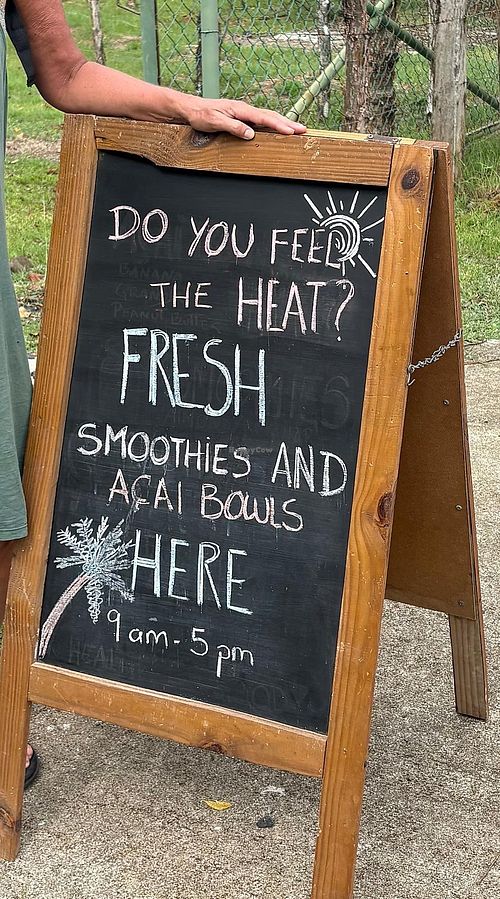 DO YOU FEEL
THE HEAT?
BANANA
PEANUT BUTTER
FRESH
SMOOTHIES AND
AÇAI BOWLS
HERE
9 am - 5 pm